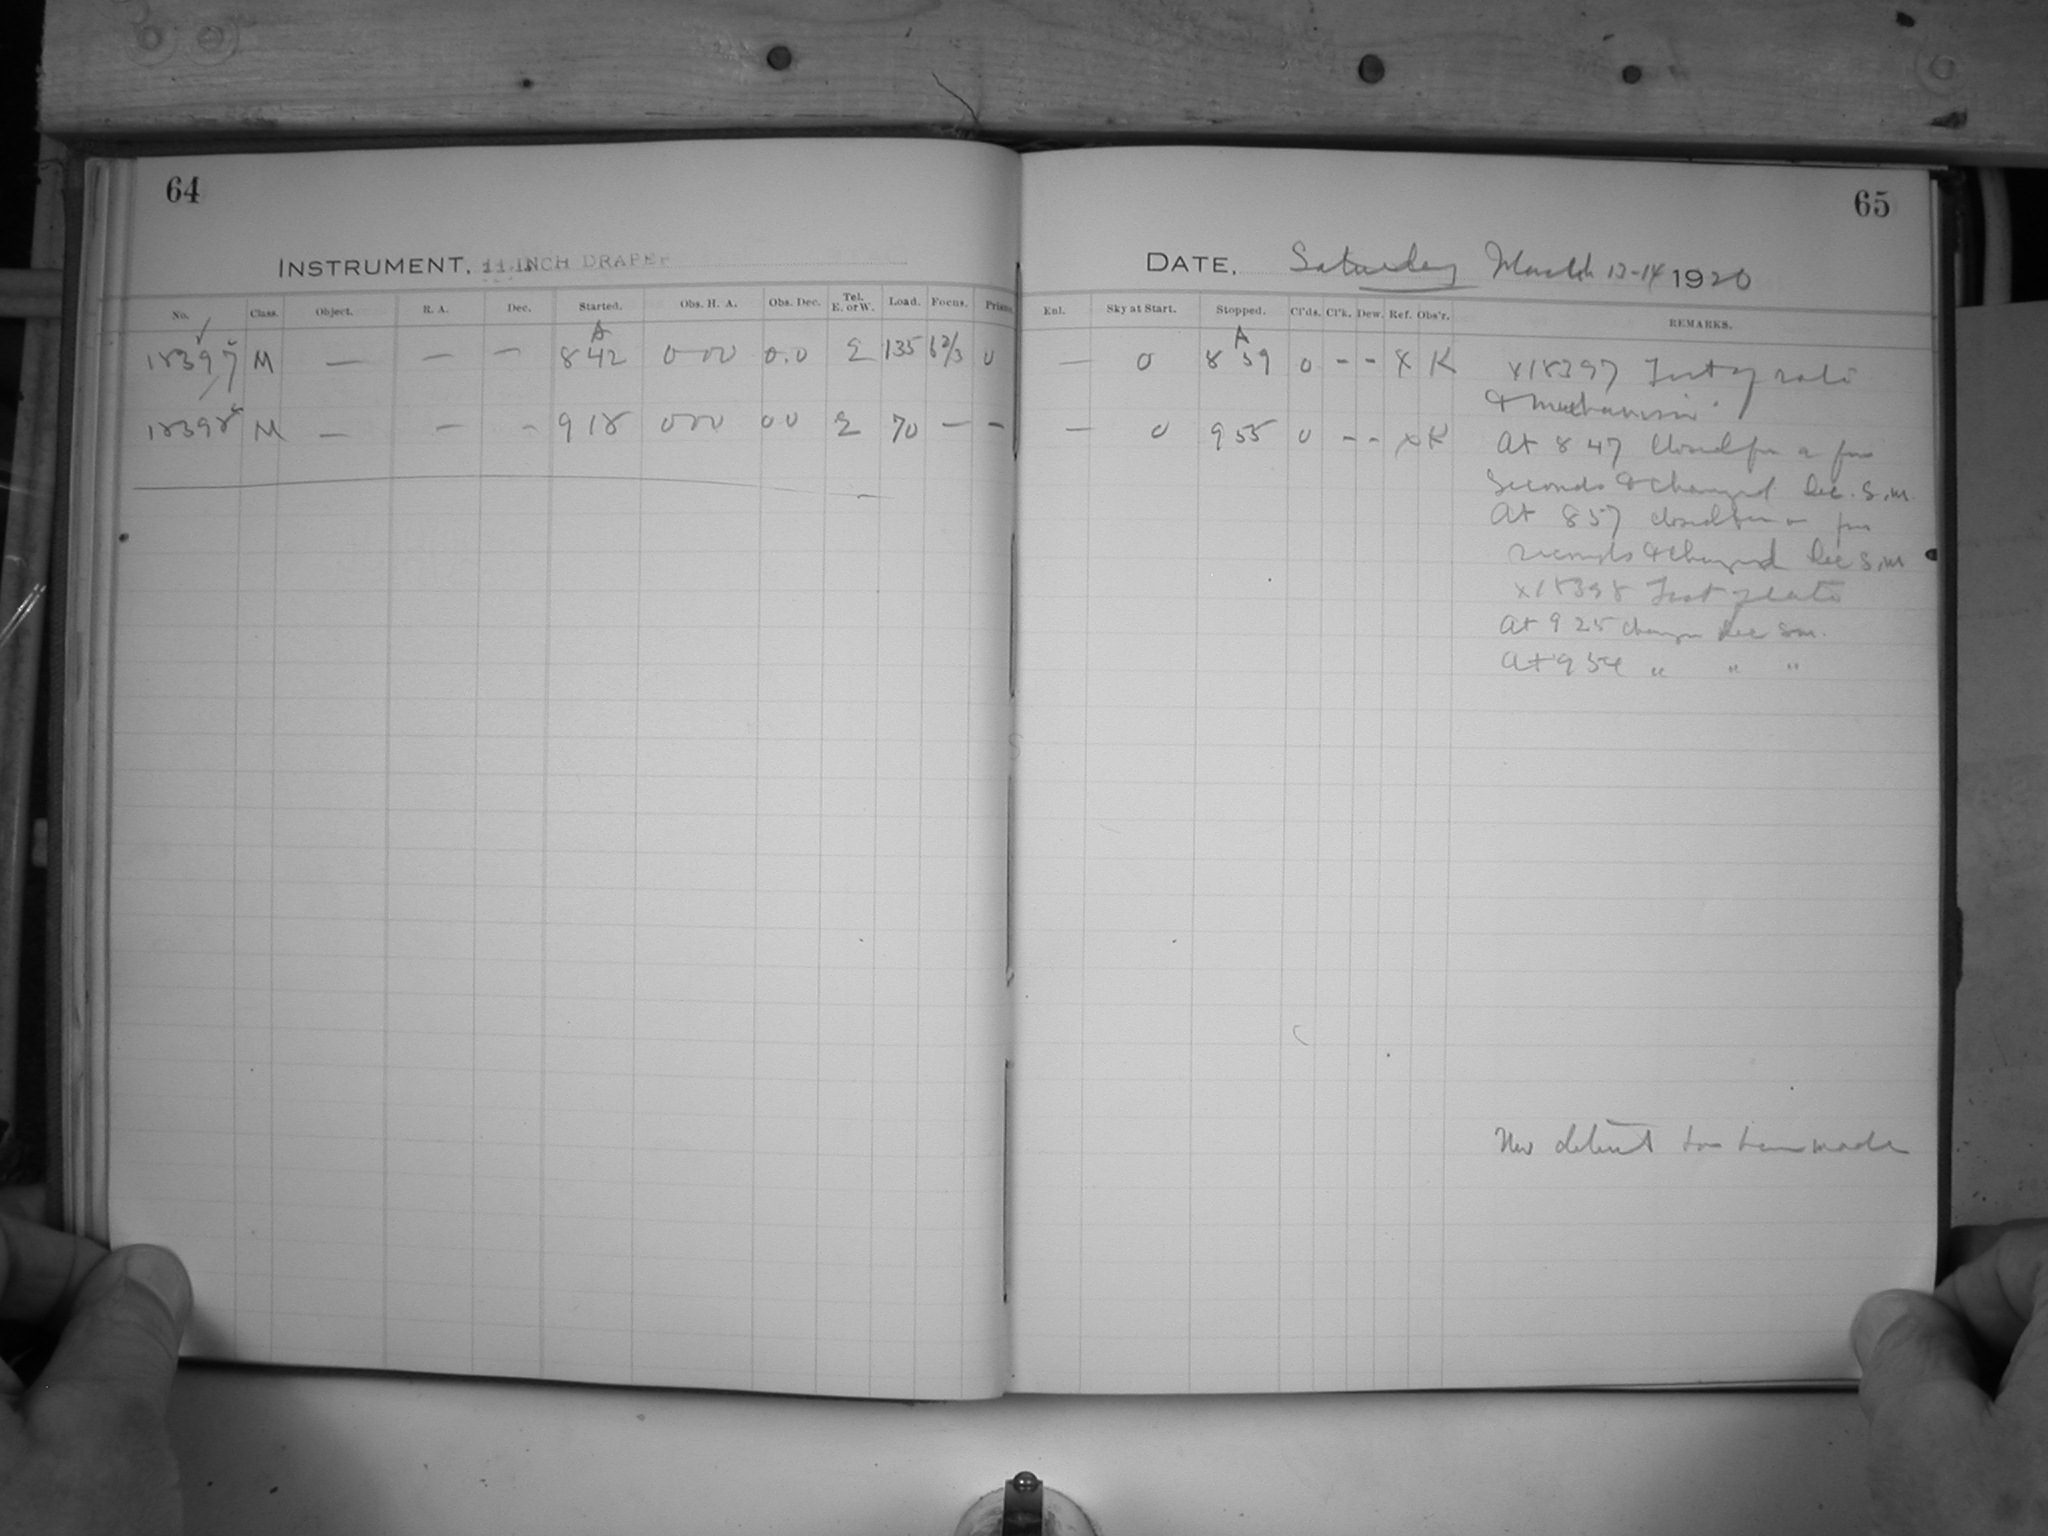 64
INSTRUMENT, 11 INCH DRAPER
No. Class. Object. R. A. Dec. Started. Obs. H. A. Obs. Dec. Tel. E. or W. Load. Focus. Prism
A
18397 M — — — 8 42 0 00 0.0 E 135 6 2/3 0
18398 M — — - 9 18 0 00 0 0 E 70 — —
65
DATE, Saturday March 13-14 1920
Enl. Sky at Start. Stopped. Cl'ds. Cl'k. Dew. Ref. Obs'r. REMARKS.
A
— 0 8 59 0 - - x K x18397 Test of
& mechanism.
— 0 9 55 0 - - x K At 8 47 Closed for a few
Seconds & changed Dec. S.M.
At 857 closed for a few
seconds & changed Dec S.M
x18398 Test plate
At 9 25 change Dec S.M.
At 9 54 " " "
New has been made